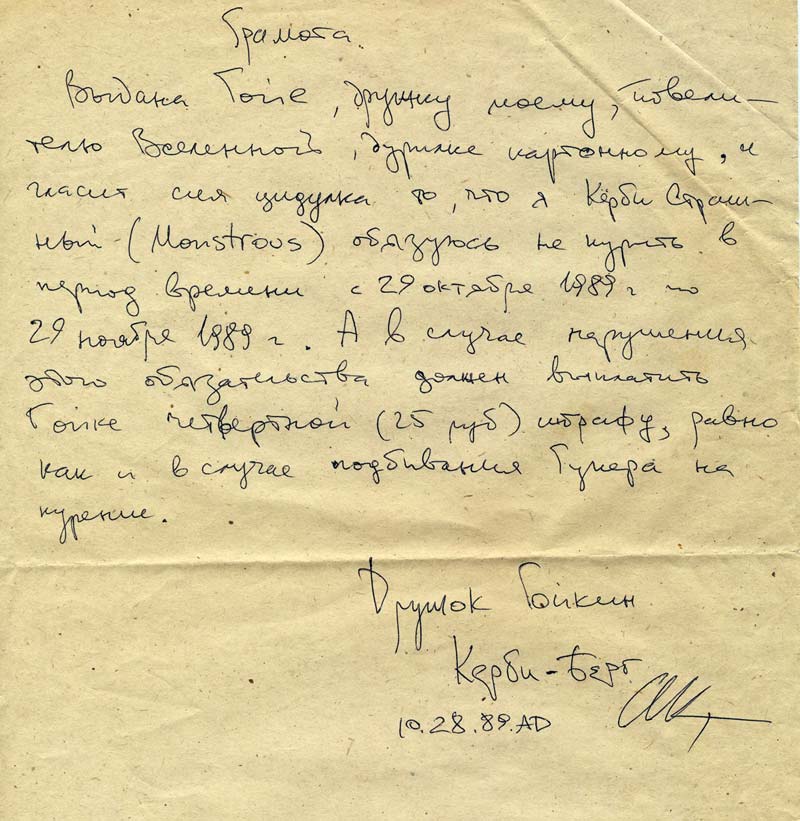 Грамота.
Выдана Гойе, дружку моему, повели-
телю Вселенной, дурилке картонному, и
гласит сия цидулка то, что я Кёрби Страш-
ный (Monstrous) обязуюсь не курить в
период времени с 29 октября 1989 г по
29 ноября 1989 г. А в случае нарушения
этого обязательства должен выплатить
Гойке четвертной (25 руб) штрафу, равно
как и в случае подбивания Гукера на
курение.
Дружок Гойкин
Керби-Берг
10.28.89.AD